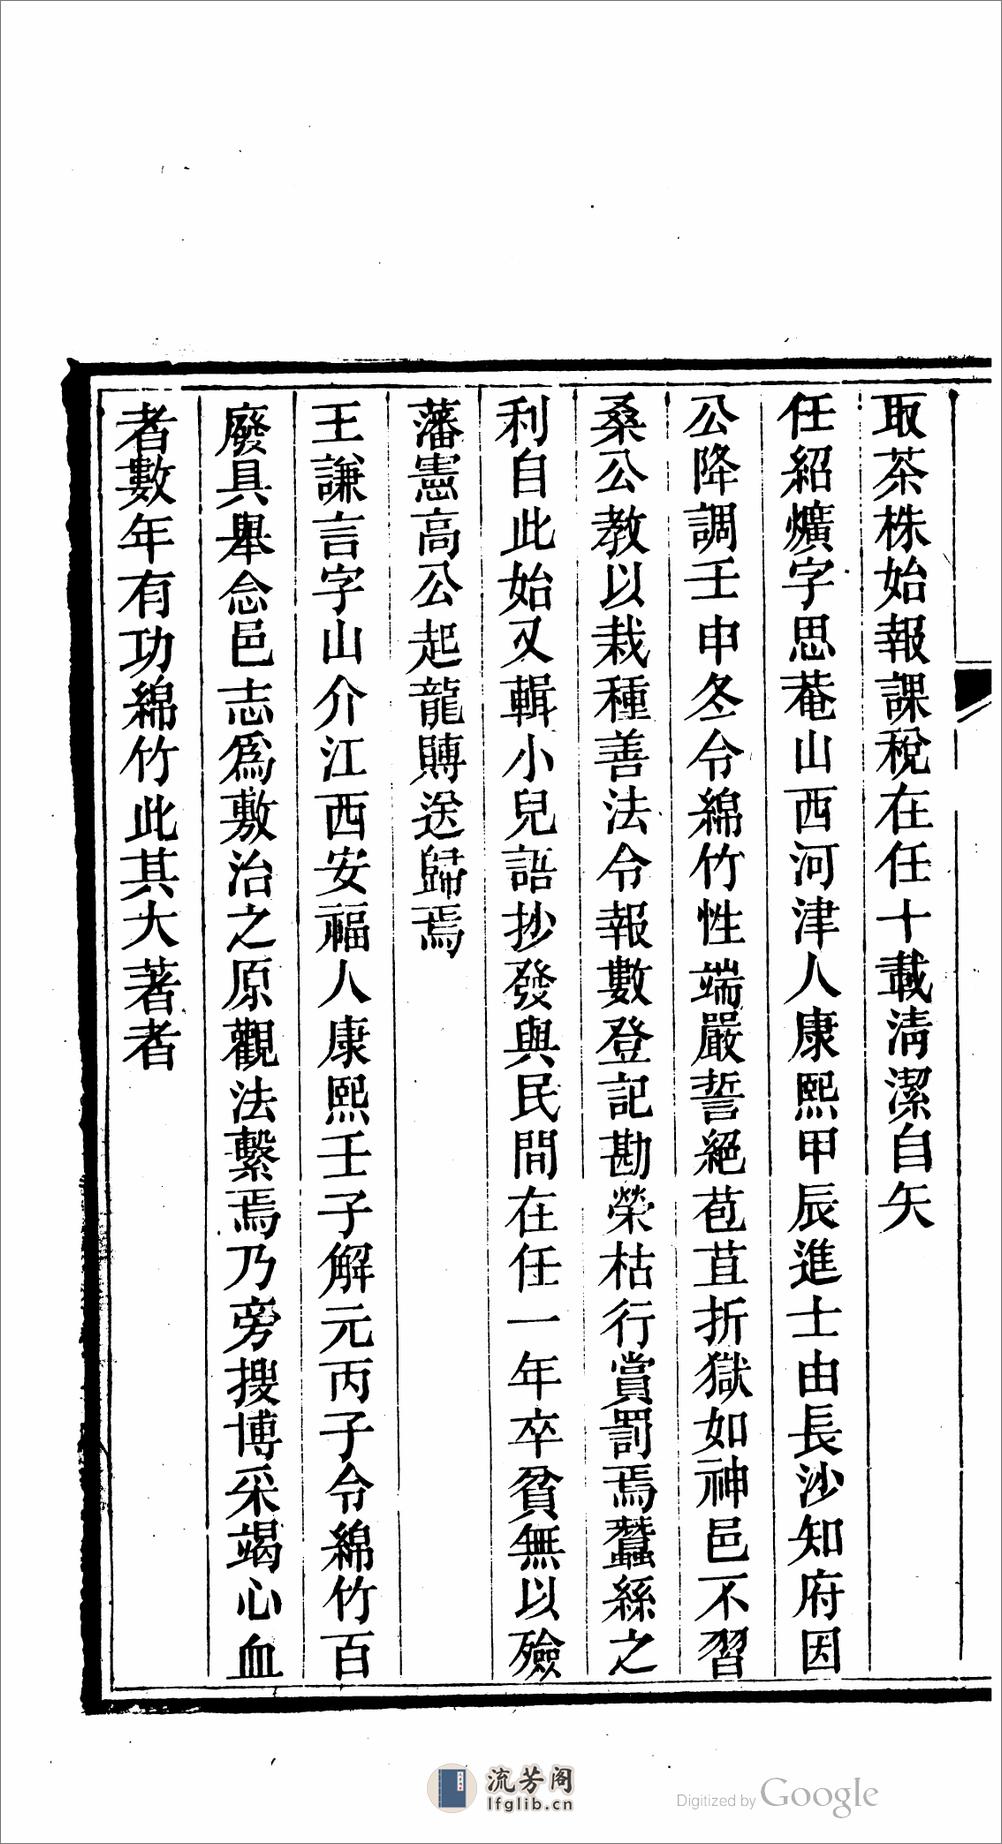 取茶株始報課稅在任十載淸潔自矢
任紹爌字思菴山西河津人康熙甲辰進士由長沙知府因
公降調壬申冬令綿竹性端嚴誓絕苞苴折獄如神邑不習
桑公教以栽種善法令報數登記勘榮枯行賞罰焉蠶絲之
利自此始又輯小兒語抄發與民間在任一年卒貧無以殮
藩憲高公起龍賻送歸焉
王謙言字山介江西安福人康熙壬子解元丙子令綿竹百
廢具舉念邑志爲敷治之原觀法繫焉乃旁搜博采竭心血
者數年有功綿竹此其大著者
流芳阁
lfglib.cn
Digitized by Google